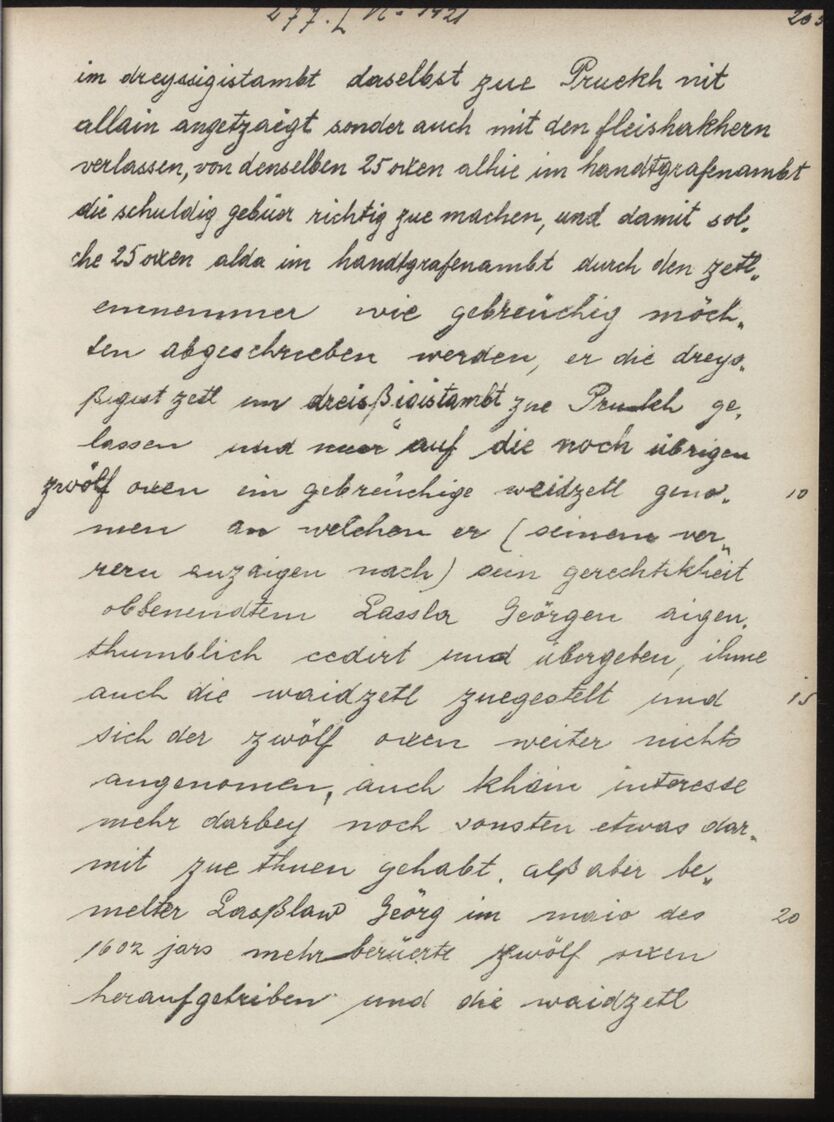 277. [ N. 1421 203
im dreyssigistambt daselbst zue Pruckh nit
allain angetzaigt sonder auch mit den fleishakhern
verlassen, von denselben 25 oxen alhie im handtgrafenambt
die schuldig gebüer richtig zue machen, und damit sol„
che 25 oxen alda im handtgrafenambt durch den zetl„
einnemmer wie gebreüchig möch„
ten abgeschrieben werden, er die dreys„
ßigist zetl im dreisßigistambt zue Pruckh ge„
lassen und nuer auf die noch übrigen
zwölf oxen ein gebreüchige weidzetl geno„ 10
men an welchen er (seinem ver„
rern anzaigen nach) sein gerechtikheit
obbenendtem Lassla Geörgen aigen„
thumblich cedirt und übergeben, ihme
auch die waidzetl zuegestelt und 15
sich der zwölf oxen weiter nichts
angenomen, auch khain interesse
mehr darbey noch sonsten etwas dar„
mit zue thuen gehabt. alß aber be„
melter Lasßlaw Geörg im maio des 20
1602 jars mehr berüerte zwölf oxen
heraufgetriben und die waidzetl